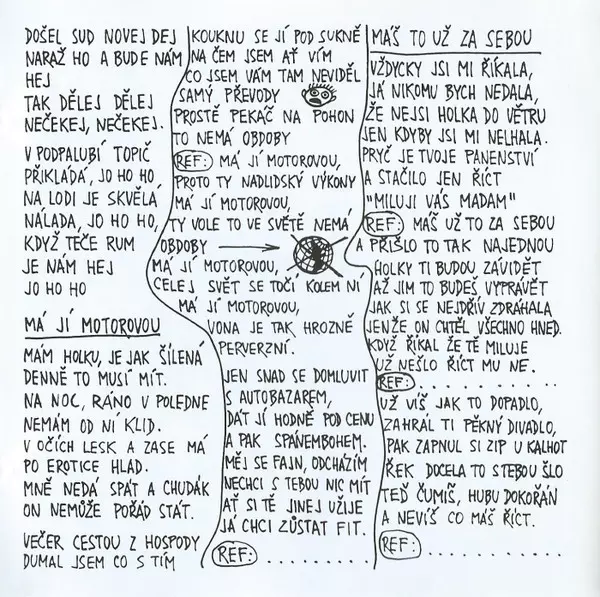 DOŠEL SUD NOVEJ DEJ
NARAŽ HO A BUDE NÁM
HEJ
TAK DĚLEJ DĚLEJ
NEČEKEJ, NEČEKEJ.
V PODPALUBÍ TOPIČ
PŘIKLÁDÁ, JO HO HO,
NA LODI JE SKVĚLÁ
NÁLADA, JO HO HO,
KDYŽ TEČE RUM
JE NÁM HEJ
JO HO HO
MÁ JÍ MOTOROVOU
MÁM HOLKU, JE JAK ŠÍLENÁ
DENNĚ TO MUSÍ MÍT.
NA NOC, RÁNO V POLEDNE
NEMÁM OD NÍ KLID.
V OČÍCH LESK A ZASE MÁ
PO EROTICE HLAD.
MNĚ NEDÁ SPÁT A CHUDÁK
ON NEMŮŽE POŘÁD STÁT.
VEČER CESTOU Z HOSPODY
DUMAL JSEM CO S TÍM
KOUKNU SE JÍ POD SUKNĚ
NA ČEM JSEM AŤ VÍM
CO JSEM VÁM TAM NEVIDĚL
SAMÝ PŘEVODY
PROSTĚ PEKÁČ NA POHON
TO NEMÁ OBDOBY
REF: MÁ JÍ MOTOROVOU,
PROTO TY NADLIDSKÝ VÝKONY
MÁ JÍ MOTOROVOU,
TY VOLE TO VE SVĚTĚ NEMÁ
OBDOBY
MÁ JÍ MOTOROVOU,
CELEJ SVĚT SE TOČÍ KOLEM NÍ
MÁ JÍ MOTOROVOU,
VONA JE TAK HROZNĚ
PERVERZNÍ.
JEN SNAD SE DOMLUVIT
S AUTOBAZAREM,
DÁT JÍ HODNĚ POD CENU
A PAK SPÁNEMBOHEM.
MĚJ SE FAJN, ODCHÁZÍM
NECHCI S TEBOU NIC MÍT
AŤ SI TĚ JINEJ UŽIJE
JÁ CHCI ZŮSTAT FIT.
REF: . . . . . . . . . .
MÁŠ TO UŽ ZA SEBOU
VŽDYCKY JSI MI ŘÍKALA,
JÁ NIKOMU BYCH NEDALA,
ŽE NEJSI HOLKA DO VĚTRU
JEN KDYBY JSI MI NELHALA.
PRYČ JE TVOJE PANENSTVÍ
A STAČILO JEN ŘÍCT
"MILUJI VÁS MADAM"
REF: MÁŠ UŽ TO ZA SEBOU
A PŘIŠLO TO TAK NAJEDNOU
HOLKY TI BUDOU ZÁVIDĚT
AŽ JIM TO BUDEŠ VYPRÁVĚT
JAK SI SE NEJDŘÍV ZDRÁHALA
JENŽE ON CHTĚL VŠECHNO HNED.
KDYŽ ŘÍKAL ŽE TĚ MILUJE
UŽ NEŠLO ŘÍCT MU NE.
REF: . . . . . . . . . .
UŽ VÍŠ JAK TO DOPADLO,
ZAHRÁL TI PĚKNÝ DIVADLO,
PAK ZAPNUL SI ZIP U KALHOT
ŘEK DOCELA TO S TEBOU ŠLO
TEĎ ČUMÍŠ, HUBU DOKOŘÁN
A NEVÍŠ CO MÁŠ ŘÍCT.
REF: . . . . . . . . . .